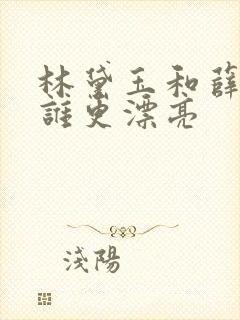 林黛玉和薛
誰更漂亮
浅陽